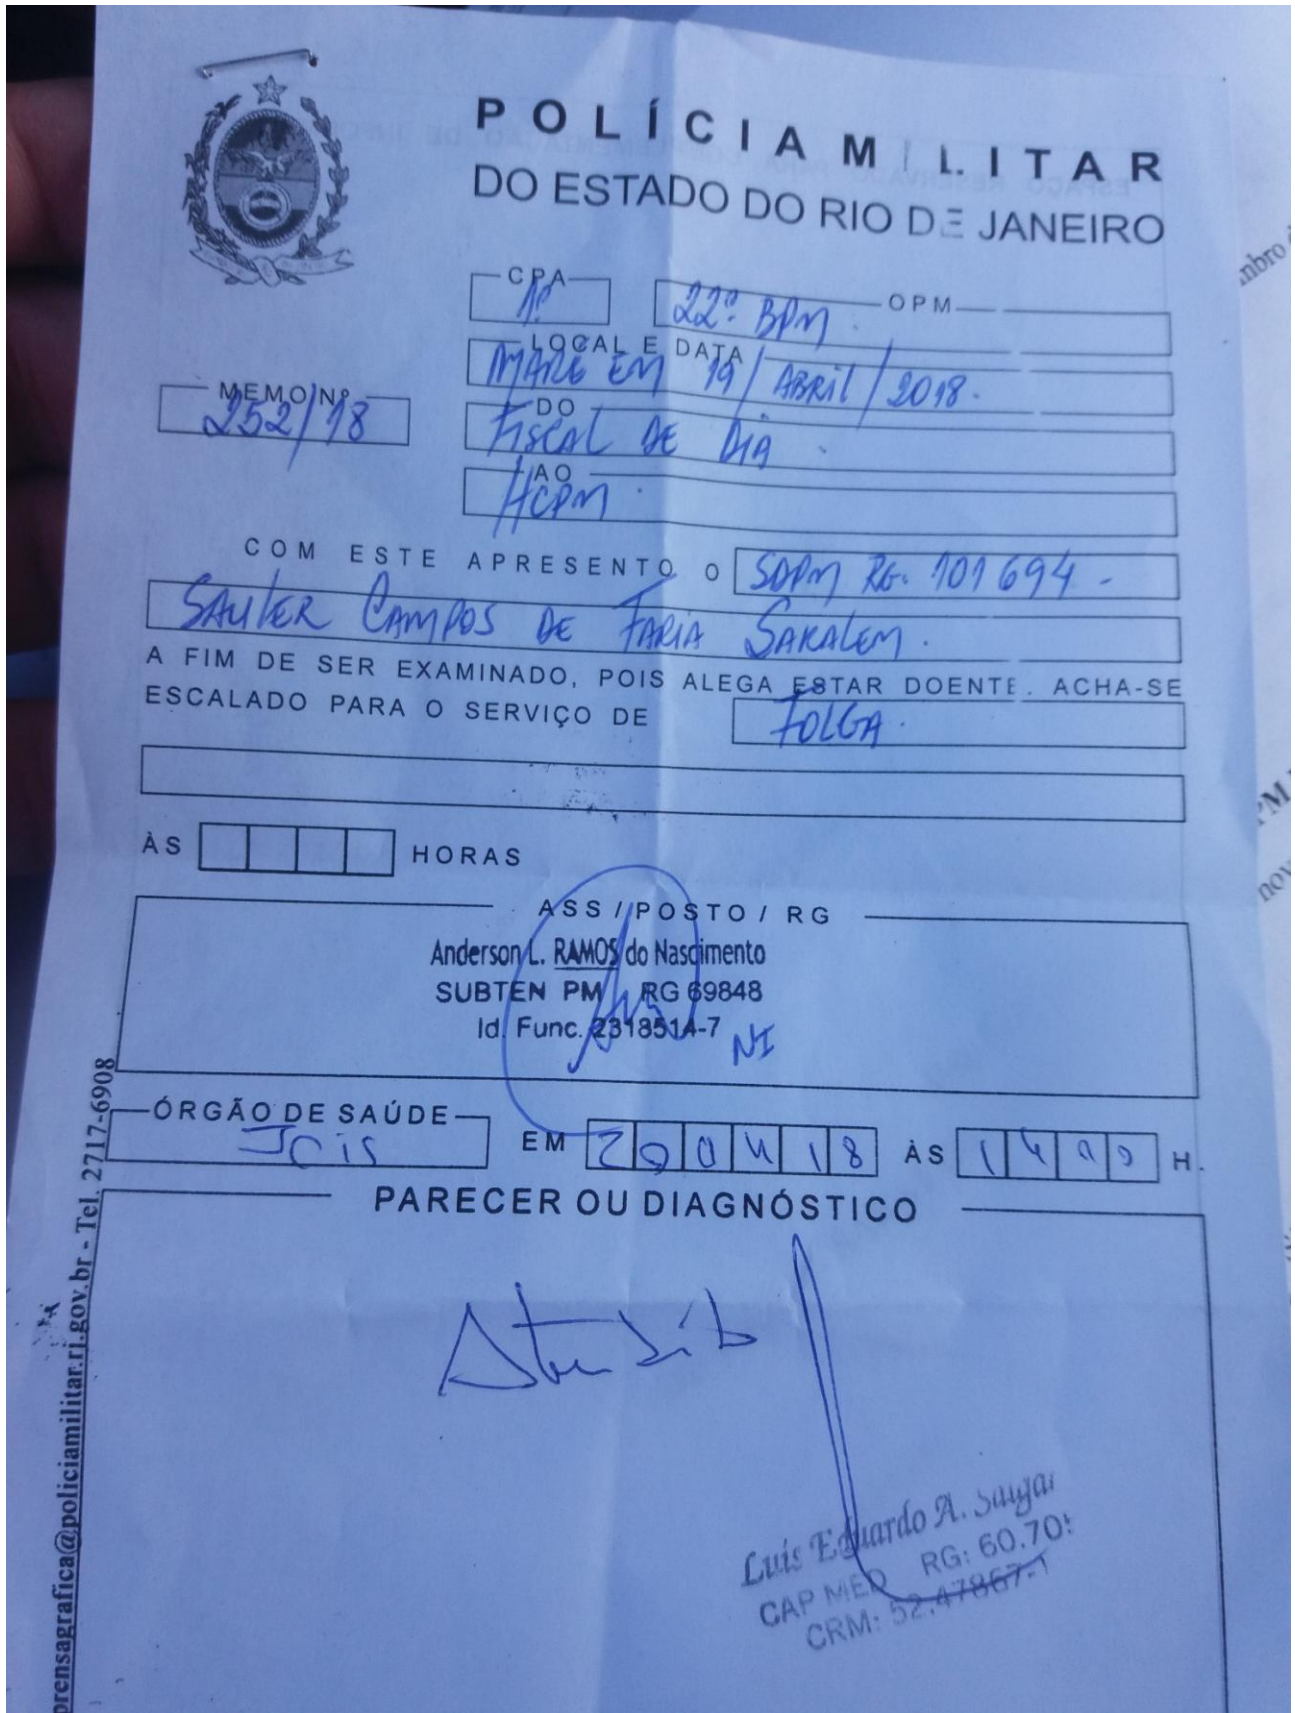 POLÍCIA MILITAR
DO ESTADO DO RIO DE JANEIRO
CPA
1º
22º BPM.
OPM
LOCAL E DATA
MARE EM 19/ABRIL/2018.
MEMO Nº
252/18
DO
FISCAL DE DIA.
AO
HCPM.
COM ESTE APRESENTO O SDPM RG. 101694-
SAULER CAMPOS DE FARIA SARALEM.
A FIM DE SER EXAMINADO, POIS ALEGA ESTAR DOENTE. ACHA-SE
ESCALADO PARA O SERVIÇO DE FOLGA.
ÀS HORAS
ASS / POSTO / RG
Anderson L. RAMOS do Nascimento
SUBTEN PM RG 69848
Id. Func. 2318514-7
NI
ÓRGÃO DE SAÚDE
JCIS
EM 200418 ÀS 1400 H.
PARECER OU DIAGNÓSTICO
Luis Eduardo A.
CAP MED RG: 60.70
CRM: 52.47867-1
prensagrafica@policiamilitar.rj.gov.br - Tel. 2717-6908